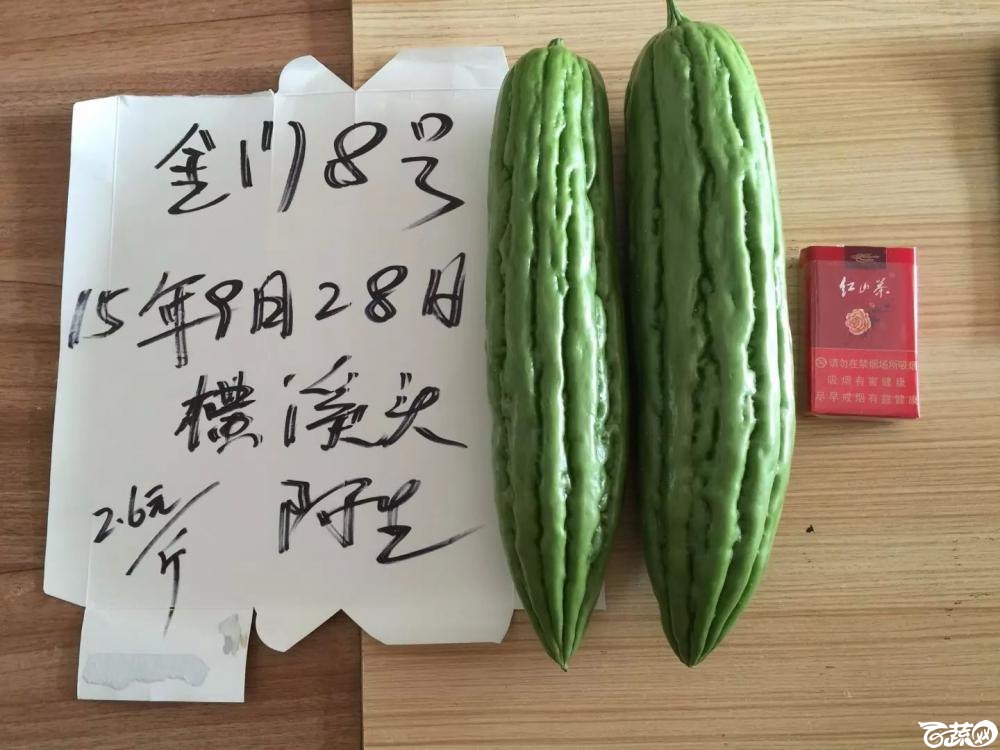 金门8号
15年9月28日
横溪头
2.6元/斤
阿生
红山茶
请勿在禁烟场所吸烟
吸烟有害健康
早早戒烟有益健康
百蔬网